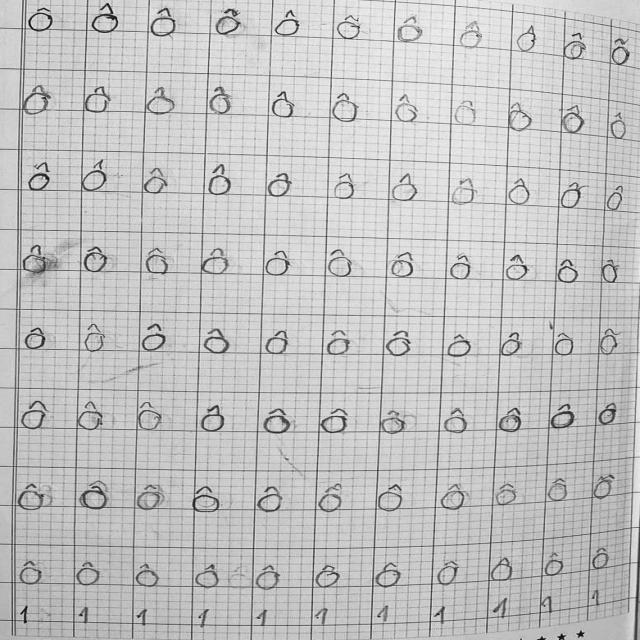 ô ô ô ô ô ô ô ô ô ô ô
ô ô ô ô ô ô ô ô ô ô ô
ô ô ô ô ô ô ô ô ô ô ô
ô ô ô ô ô ô ô ô ô ô ô
ô ô ô ô ô ô ô ô ô ô ô
ô ô ô ô ô ô ô ô ô ô ô
ô ô ô ô ô ô ô ô ô ô ô
ô ô ô ô ô ô ô ô ô ô ô
1 1 1 1 1 1 1 1 1 1 1